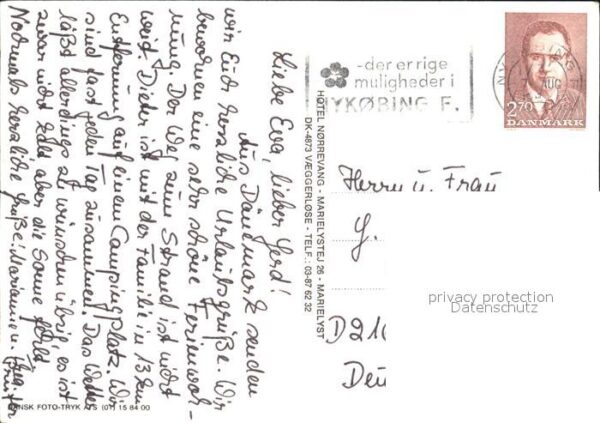 Liebe Eva, lieber Gerd!
Aus Dänemark senden
wir Euch herzliche Urlaubsgrüße. Wir
bewohnen eine sehr schöne Ferienwoh-
nung. Der Weg zum Strand ist nicht
weit. Dieter ist mit der Familie in 13 km
Entfernung auf einem Campingplatz. Wir
sind fast jeden Tag zusammen. Das Wetter
läßt allerdings zu wünschen übrig, es ist
zwar nicht kalt aber die Sonne fehlt.
Nochmals herzliche Grüße: Marianne u.
HOTEL NØRREVANG - MARIELYSTEJ 26 - MARIELYST
DK-4873 VÆGGERLØSE - TELF.: 03-87 62 32
DANSK FOTO-TRYK A/S (07) 15 84 00
-der er rige
muligheder i
NYKØBING F.
AUG
2.70
DANMARK
Herrn u. Frau
G.
D 21
Deu
privacy protection
Datenschutz